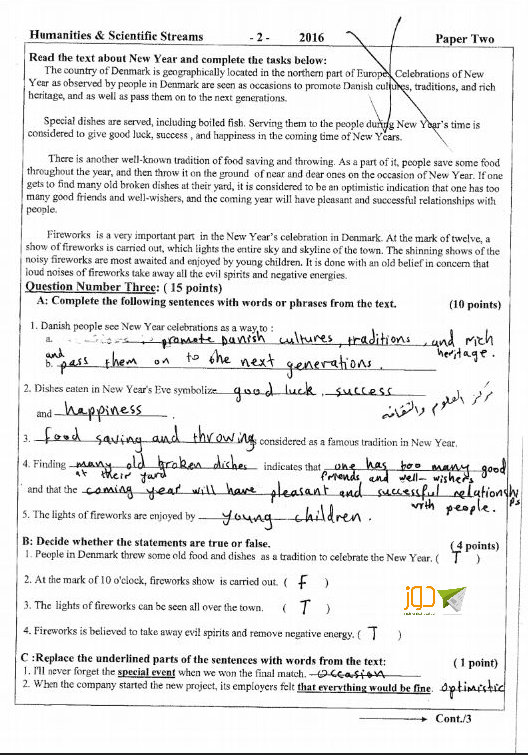 Humanities & Scientific Streams - 2 - 2016 Paper Two
Read the text about New Year and complete the tasks below:
The country of Denmark is geographically located in the northern part of Europe. Celebrations of New
Year as observed by people in Denmark are seen as occasions to promote Danish cultures, traditions, and rich
heritage, and as well as pass them on to the next generations.
Special dishes are served, including boiled fish. Serving them to the people during New Year's time is
considered to give good luck, success , and happiness in the coming time of New Years.
There is another well-known tradition of food saving and throwing. As a part of it, people save some food
throughout the year, and then throw it on the ground of near and dear ones on the occasion of New Year. If one
gets to find many old broken dishes at their yard, it is considered to be an optimistic indication that one has too
many good friends and well-wishers, and the coming year will have pleasant and successful relationships with
people.
Fireworks is a very important part in the New Year's celebration in Denmark. At the mark of twelve, a
show of fireworks is carried out, which lights the entire sky and skyline of the town. The shinning shows of the
noisy fireworks are most awaited and enjoyed by young children. It is done with an old belief in concern that
loud noises of fireworks take away all the evil spirits and negative energies.
Question Number Three: ( 15 points)
A: Complete the following sentences with words or phrases from the text. (10 points)
1. Danish people see New Year celebrations as a way to :
a. promote Danish cultures, traditions, and rich
heritage.
and
b. pass them on to the next generations.
2. Dishes eaten in New Year's Eve symbolize good luck, success
and happiness .
مركز العلوم والثقافة
3. food saving and throwing is considered as a famous tradition in New Year.
4. Finding many old broken dishes indicates that one has too many good
at their yard friends and well-wishers
and that the coming year will have pleasant and successful relationships
with people.
5. The lights of fireworks are enjoyed by young children.
B: Decide whether the statements are true or false. ( 4 points)
1. People in Denmark threw some old food and dishes as a tradition to celebrate the New Year. ( T )
2. At the mark of 10 o'clock, fireworks show is carried out. ( F )
3. The lights of fireworks can be seen all over the town. ( T )
دوز
4. Fireworks is believed to take away evil spirits and remove negative energy. ( T )
C :Replace the underlined parts of the sentences with words from the text: ( 1 point)
1. I'll never forget the special event when we won the final match. occasion
2. When the company started the new project, its employers felt that everything would be fine. optimistic
Cont./3